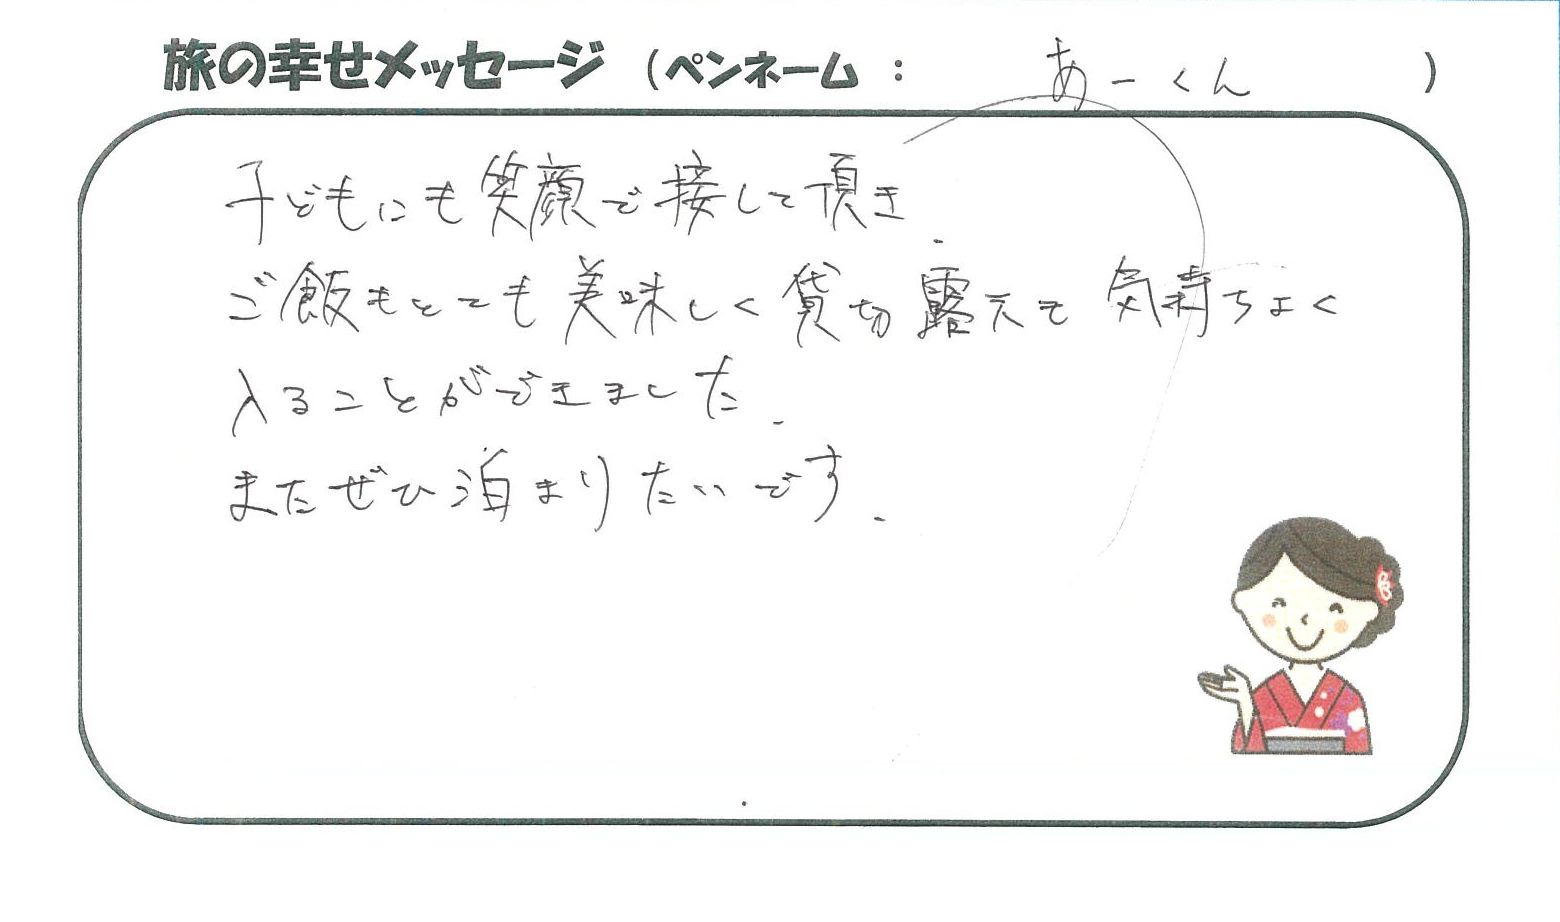 旅の幸せメッセージ （ペンネーム： あーくん ）
子どもにも笑顔で接して頂き.
ご飯もとても美味しく貸切露天も気持ちよく
入ることができました.
またぜひ泊まりたいです.